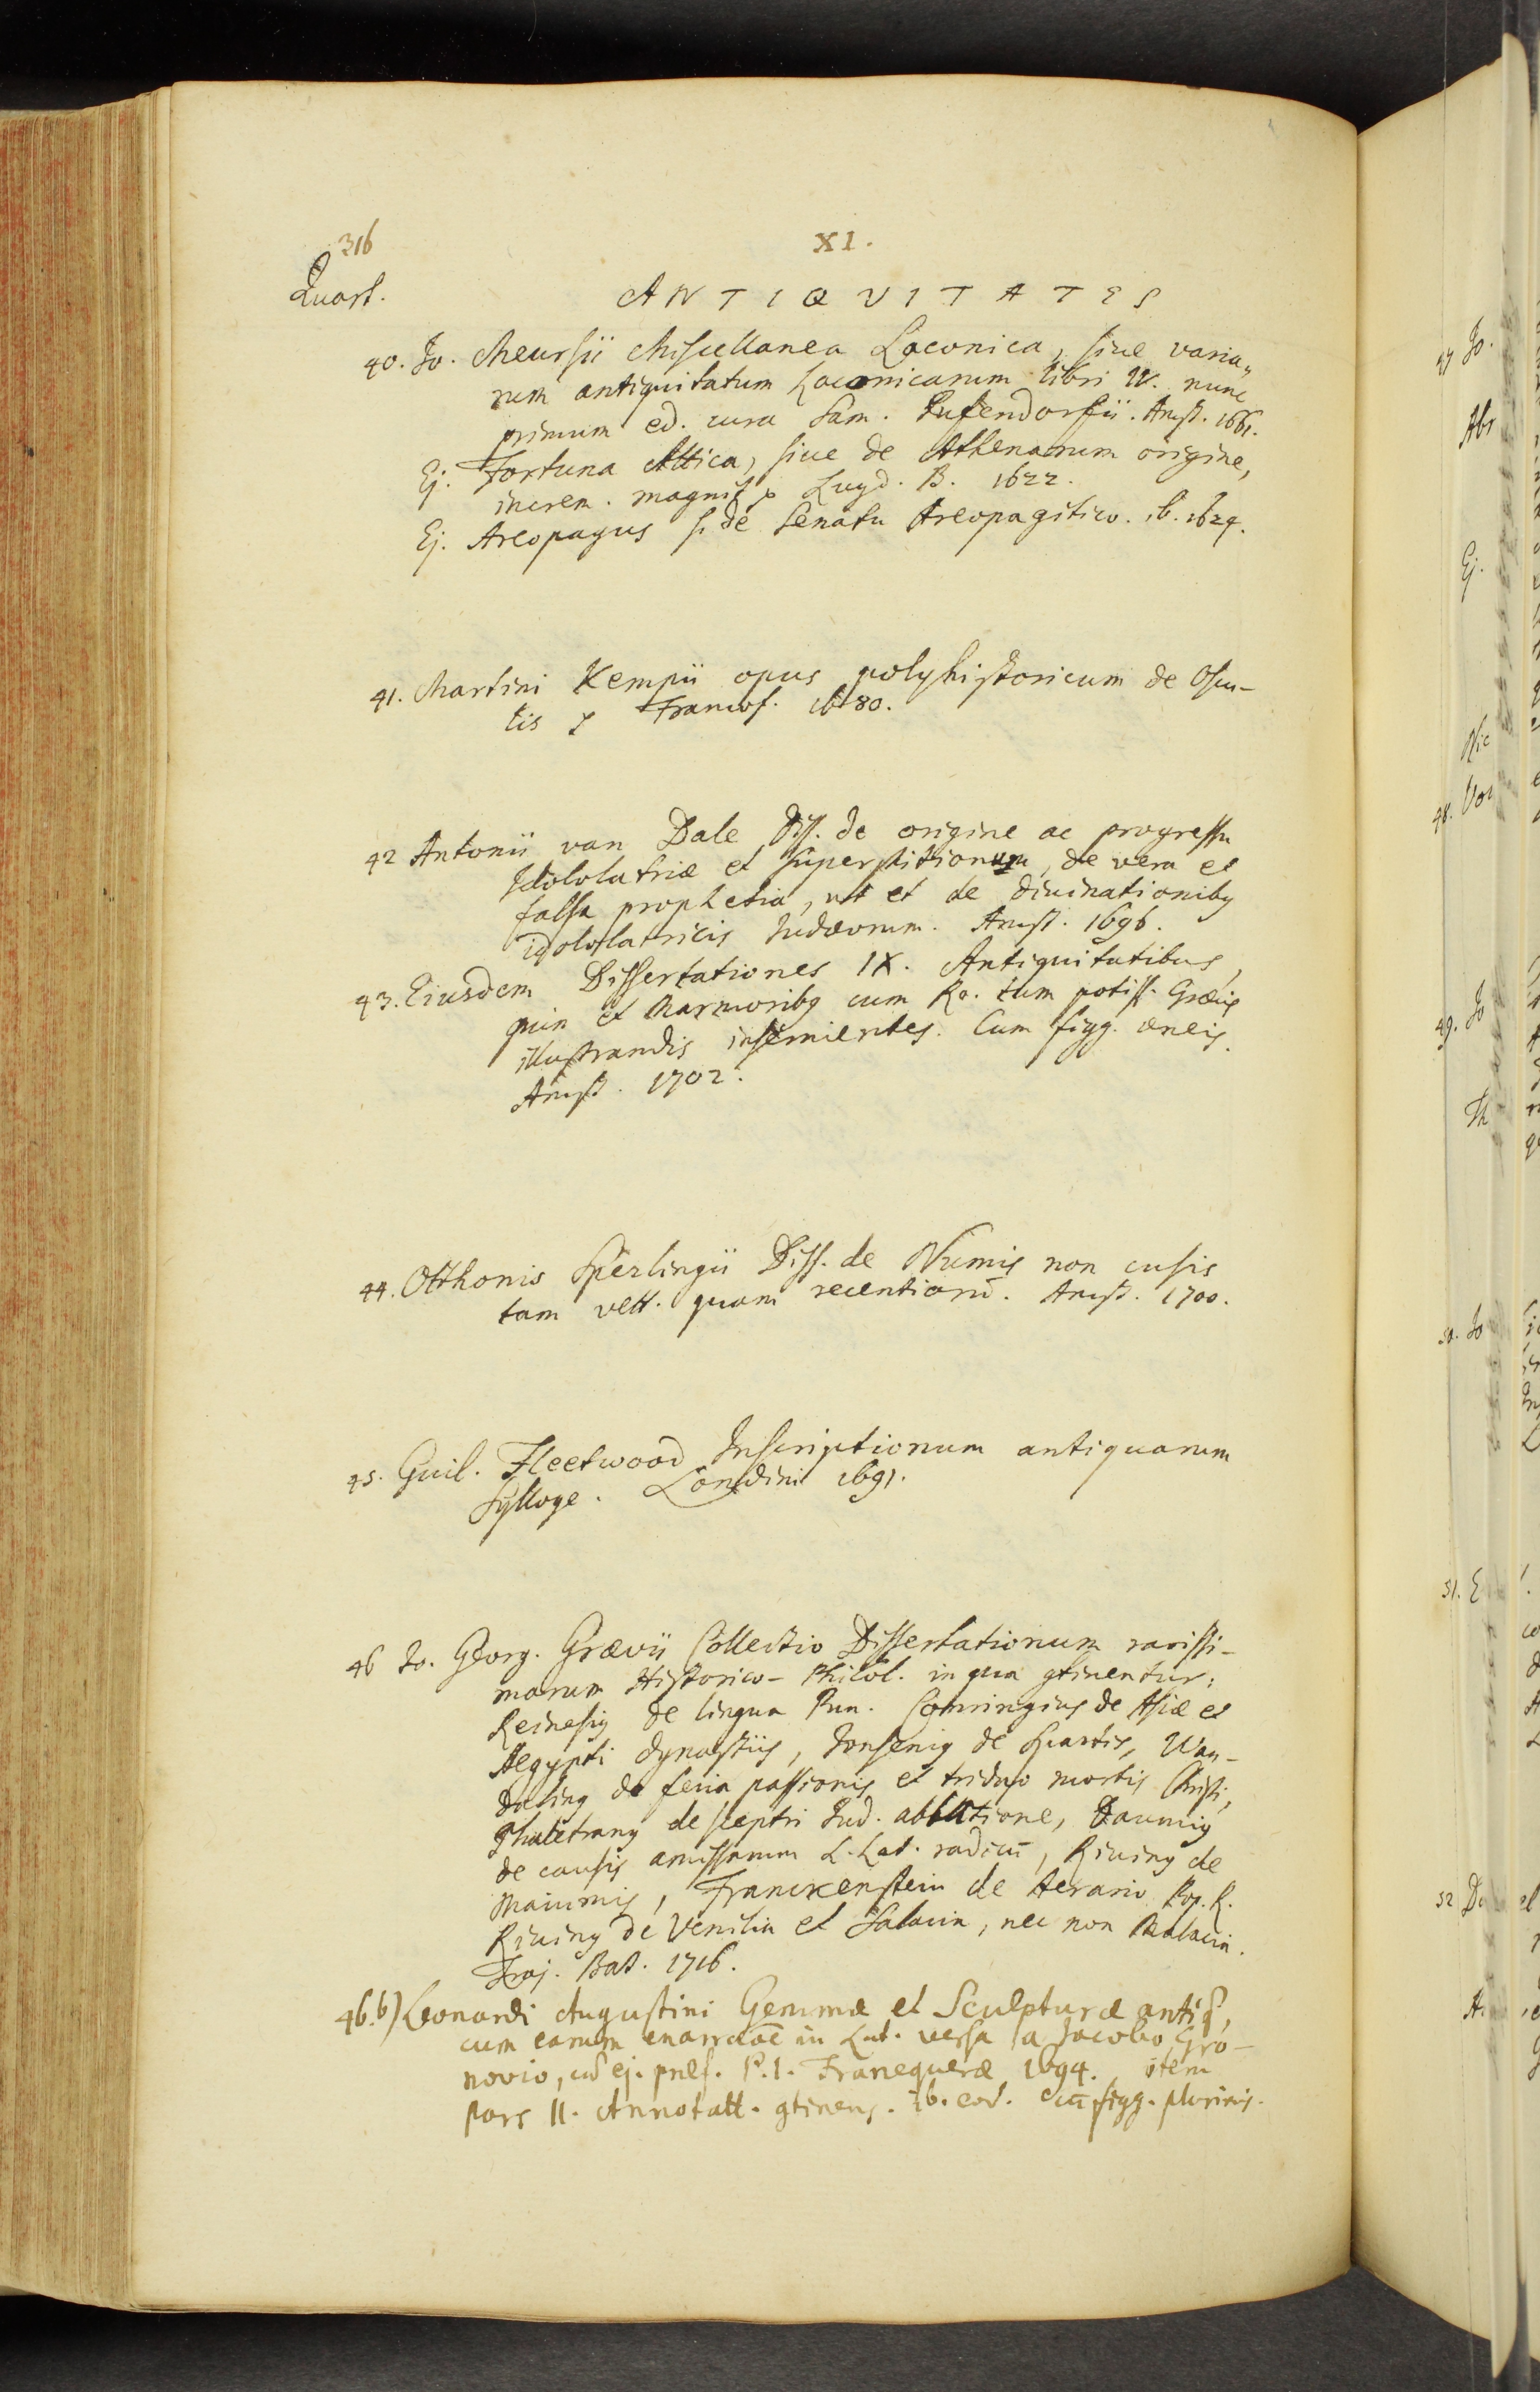 316
XI.
Quart.
ANTIQVITATES
40. Jo. Meursii Miscellanea Laconica, siue varia„
rum antiquitatum Laconicarum libri IV. nunc
primum ed. cura Sam. Pufendorfii. Amst. 1661.
Ej. Fortuna Attica, siue de Athenarum origine,
increm. magnit. Lugd. B. 1622.
Ej. Areopagus s. de Senatu Areopagitico. ib. 1624.
41. Martini Kempii opus polyhistoricum de Oscu-
lis Francof. 1680.
42 Antonii van Dale Diss. de origine ac progressu
Idololatriæ et Superstitionum, de vera et
falsa prophetia, uti et de diuinationibꝰ
idololatricis Judæorum. Amst. 1696.
43. Eiusdem Dissertationes IX. Antiquitatibus,
quin et Marmoribꝰ cum Ro. tum potiss. Græcis
illustrandis inseruientes. Cum figg. æneis.
Amst. 1702.
44. Otthonis Sperlingii Diss. de Numis non cusis
tam vett. quam recentiorū. Amst. 1700.
45. Guil. Fleetwood Inscriptionum antiquarum
Sylloge. Londini 1691.
46 Jo. Georg. Grævii Collectio Dissertationum rarissi-
marum Historico-Philol. in qua ꝯtinentur:
Reinesiꝰ de lingua Pun. Conringius de Asiæ et
Aegypti dynastiis, Jonseniꝰ de Spartis, Wan-
dalinꝰ de feria passionis et triduo mortis Christi,
de sceptri Jud. ablatione, Daumiꝰ
de causis amissarum L. Lat. radicū, Riuinꝰ de
Maiumis, Franckenstein de Aerario Pop. R.
Riuinꝰ de Venilia et Salacia, nec non Malacia.
Traj. Bat. 1716.
46.b) Leonardi Augustini Gemmæ et Sculpturæ antiq̄,
cum earum enarratōe in Lat. versa a Jacobo Gro-
novio, cū ej. præf. P. I. Franequeræ 1694. item
Pars II. Annotatt. ꝯtinens. ib. eod. cū figg. plurimis.
47 Jo.
Abr
Ej.
Nic
48. Vor
49. Jo
Th
50. Jo
51. E
52 Da